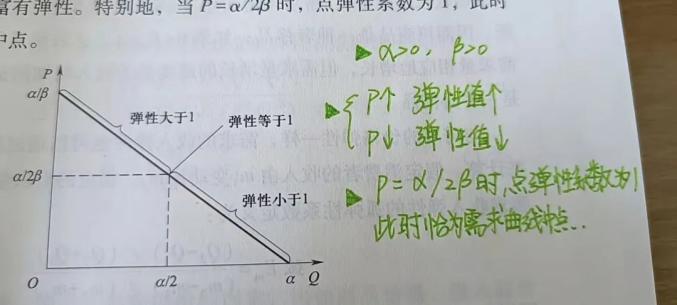 富有弹性。特别地，当 P=α/2β 时，点弹性系数为 1，此时
中点。
P
α/β
弹性大于1
弹性等于1
α/2β
弹性小于1
O
α/2
α
Q
▶ α>0，β>0
▶ { P↑ 弹性值↑
P↓ 弹性值↓
▶ P=α/2β时，点弹性系数为1
此时恰为需求曲线中点..